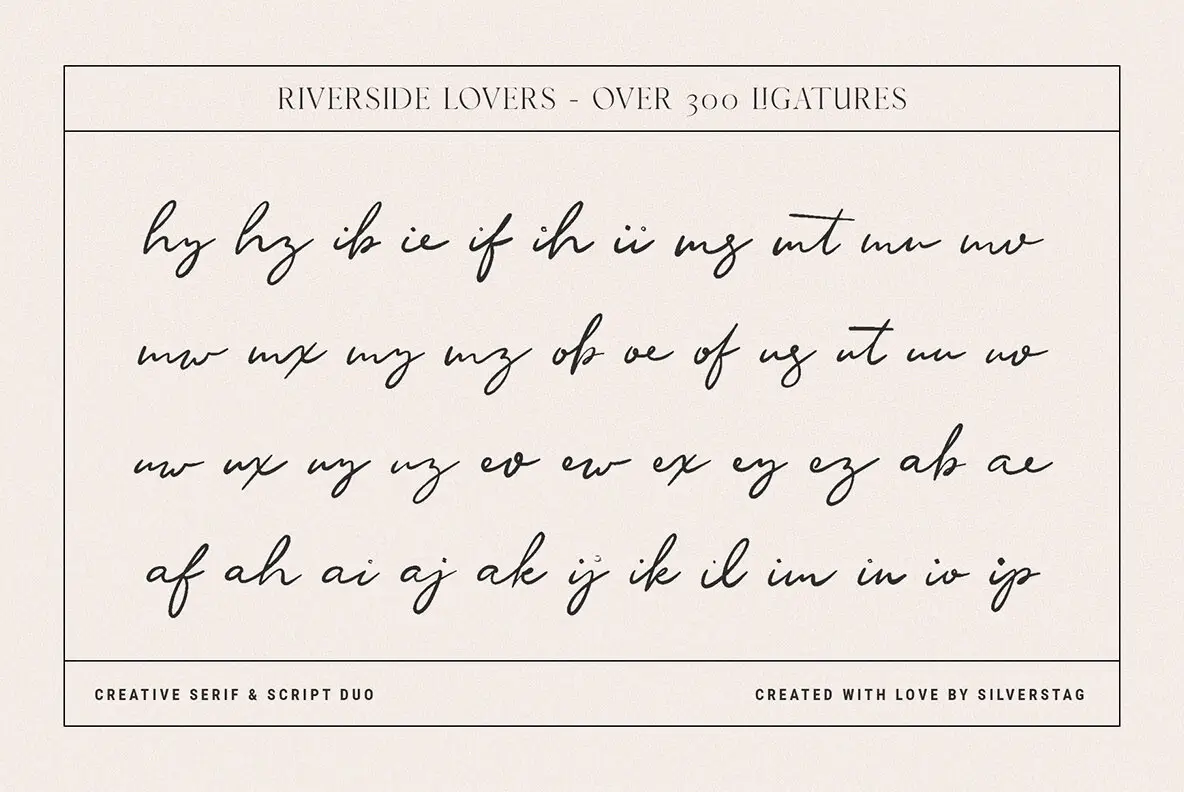 RIVERSIDE LOVERS - OVER 300 LIGATURES
hy hz ib ie if ih ii mg mt mu mv
mw mx my mz ob oe of ug ut uu uv
uw ux uy uz ev ew ex ey ez ab ae
af ah ai aj ak ij ik il im in io ip
CREATIVE SERIF & SCRIPT DUO
CREATED WITH LOVE BY SILVERSTAG